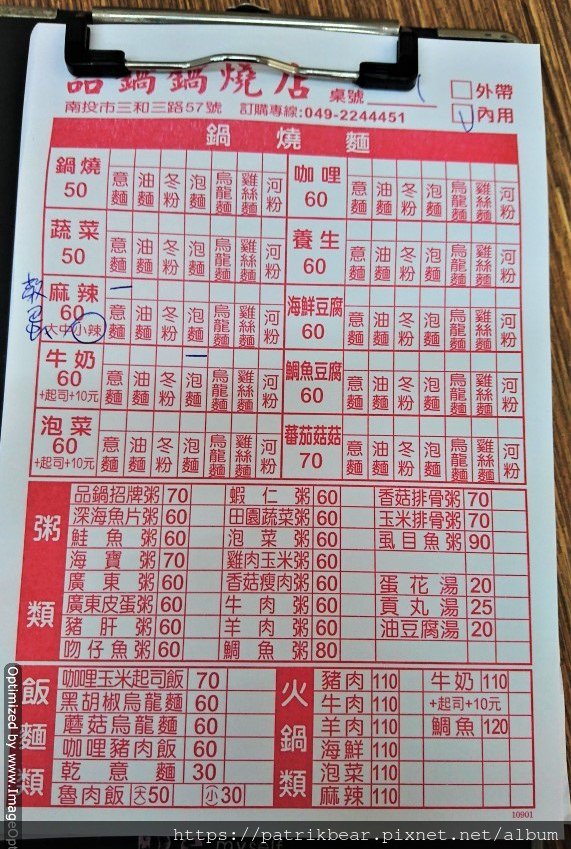 品鍋鍋燒店
桌號
外帶
南投市三和三路57號 訂購專線:049-2244451
內用
鍋燒麵
鍋燒 50 意麵 油麵 冬粉 泡麵 烏龍麵 雞絲麵 河粉
咖哩 60 意麵 油麵 冬粉 泡麵 烏龍麵 雞絲麵 河粉
蔬菜 50 意麵 油麵 冬粉 泡麵 烏龍麵 雞絲麵 河粉
養生 60 意麵 油麵 冬粉 泡麵 烏龍麵 雞絲麵 河粉
麻辣 60 大中小辣 意麵 油麵 冬粉 泡麵 烏龍麵 雞絲麵 河粉
海鮮豆腐 60 意麵 油麵 冬粉 泡麵 烏龍麵 雞絲麵 河粉
牛奶 60 +起司+10元 意麵 油麵 冬粉 泡麵 烏龍麵 雞絲麵 河粉
鯛魚豆腐 60 意麵 油麵 冬粉 泡麵 烏龍麵 雞絲麵 河粉
泡菜 60 +起司+10元 意麵 油麵 冬粉 泡麵 烏龍麵 雞絲麵 河粉
蕃茄菇菇 70 意麵 油麵 冬粉 泡麵 烏龍麵 雞絲麵 河粉
粥類
品鍋招牌粥 70 蝦仁粥 60 香菇排骨粥 70
深海魚片粥 60 田園蔬菜粥 60 玉米排骨粥 70
鮭魚粥 60 泡菜粥 60 虱目魚粥 90
海寶粥 70 雞肉玉米粥 60
廣東粥 60 香菇瘦肉粥 60 蛋花湯 20
廣東皮蛋粥 60 牛肉粥 60 貢丸湯 25
豬肝粥 60 羊肉粥 60 油豆腐湯 20
吻仔魚粥 60 鯛魚粥 80
飯麵類
咖哩玉米起司飯 70
黑胡椒烏龍麵 60
蘑菇烏龍麵 60
咖哩豬肉飯 60
乾意麵 30
魯肉飯 大50 小30
火鍋類
豬肉 110 牛奶 110
牛肉 110 +起司+10元
羊肉 110 鯛魚 120
海鮮 110
泡菜 110
麻辣 110
10901
Optimized by www.ImageOpt
https://patrikbear.pixnet.net/album